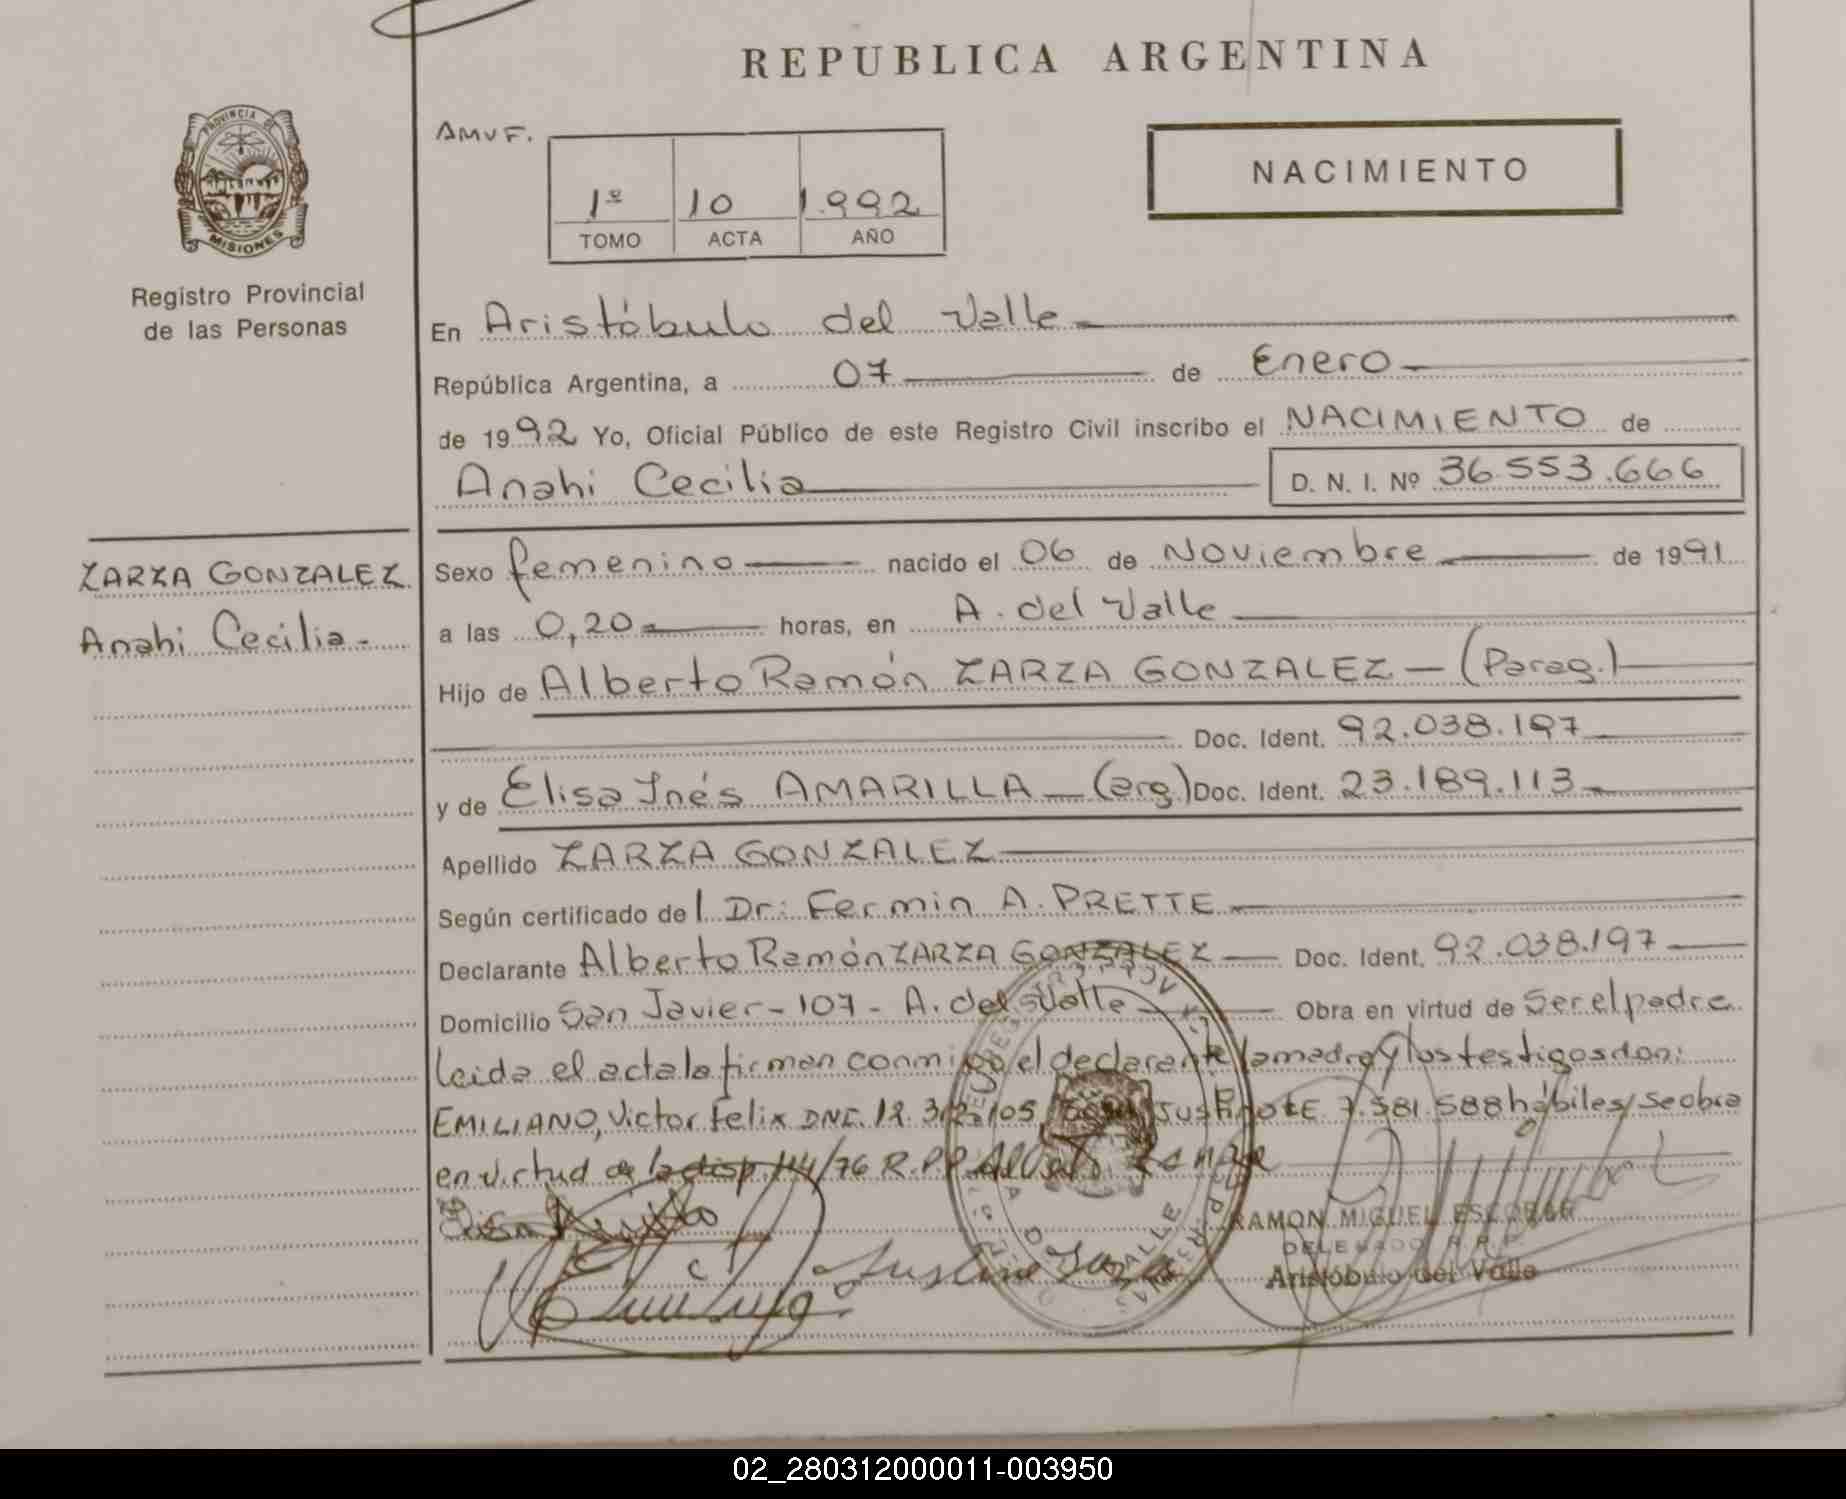 REPUBLICA ARGENTINA
PROVINCIA DE
MISIONES
Registro Provincial
de las Personas
AMVF.
1º 10 1.992
TOMO ACTA AÑO
NACIMIENTO
En Aristóbulo del Valle
República Argentina, a 07 de Enero
de 1992 Yo, Oficial Público de este Registro Civil inscribo el NACIMIENTO de
Anahi Cecilia D. N. I. Nº 36.553.666
ZARZA GONZALEZ
Anahi Cecilia.-
Sexo femenino nacido el 06 de Noviembre de 1991
a las 0,20 horas, en A. del Valle
Hijo de Alberto Ramón ZARZA GONZALEZ - (Parag.)
Doc. Ident. 92.038.197
y de Elisa Inés AMARILLA - (arg) Doc. Ident. 23.189.113
Apellido ZARZA GONZALEZ
Según certificado del Dr: Fermin A. PRETTE
Declarante Alberto Ramón ZARZA GONZALEZ Doc. Ident. 92.038.197
Domicilio San Javier - 107 - A. del Valle Obra en virtud de ser el padre
leida el acta la firman conmigo el declarante la madre y los testigos don:
EMILIANO, Victor Felix DNI. 12.322.105 Justino LE 7.581.588 hábiles, se obra
en virtud de la disp. 114/76 R.P.P.
RAMON MIGUEL ESCOBAR
DELEGADO R.P.P.
Aristóbulo del Valle
02_280312000011-003950